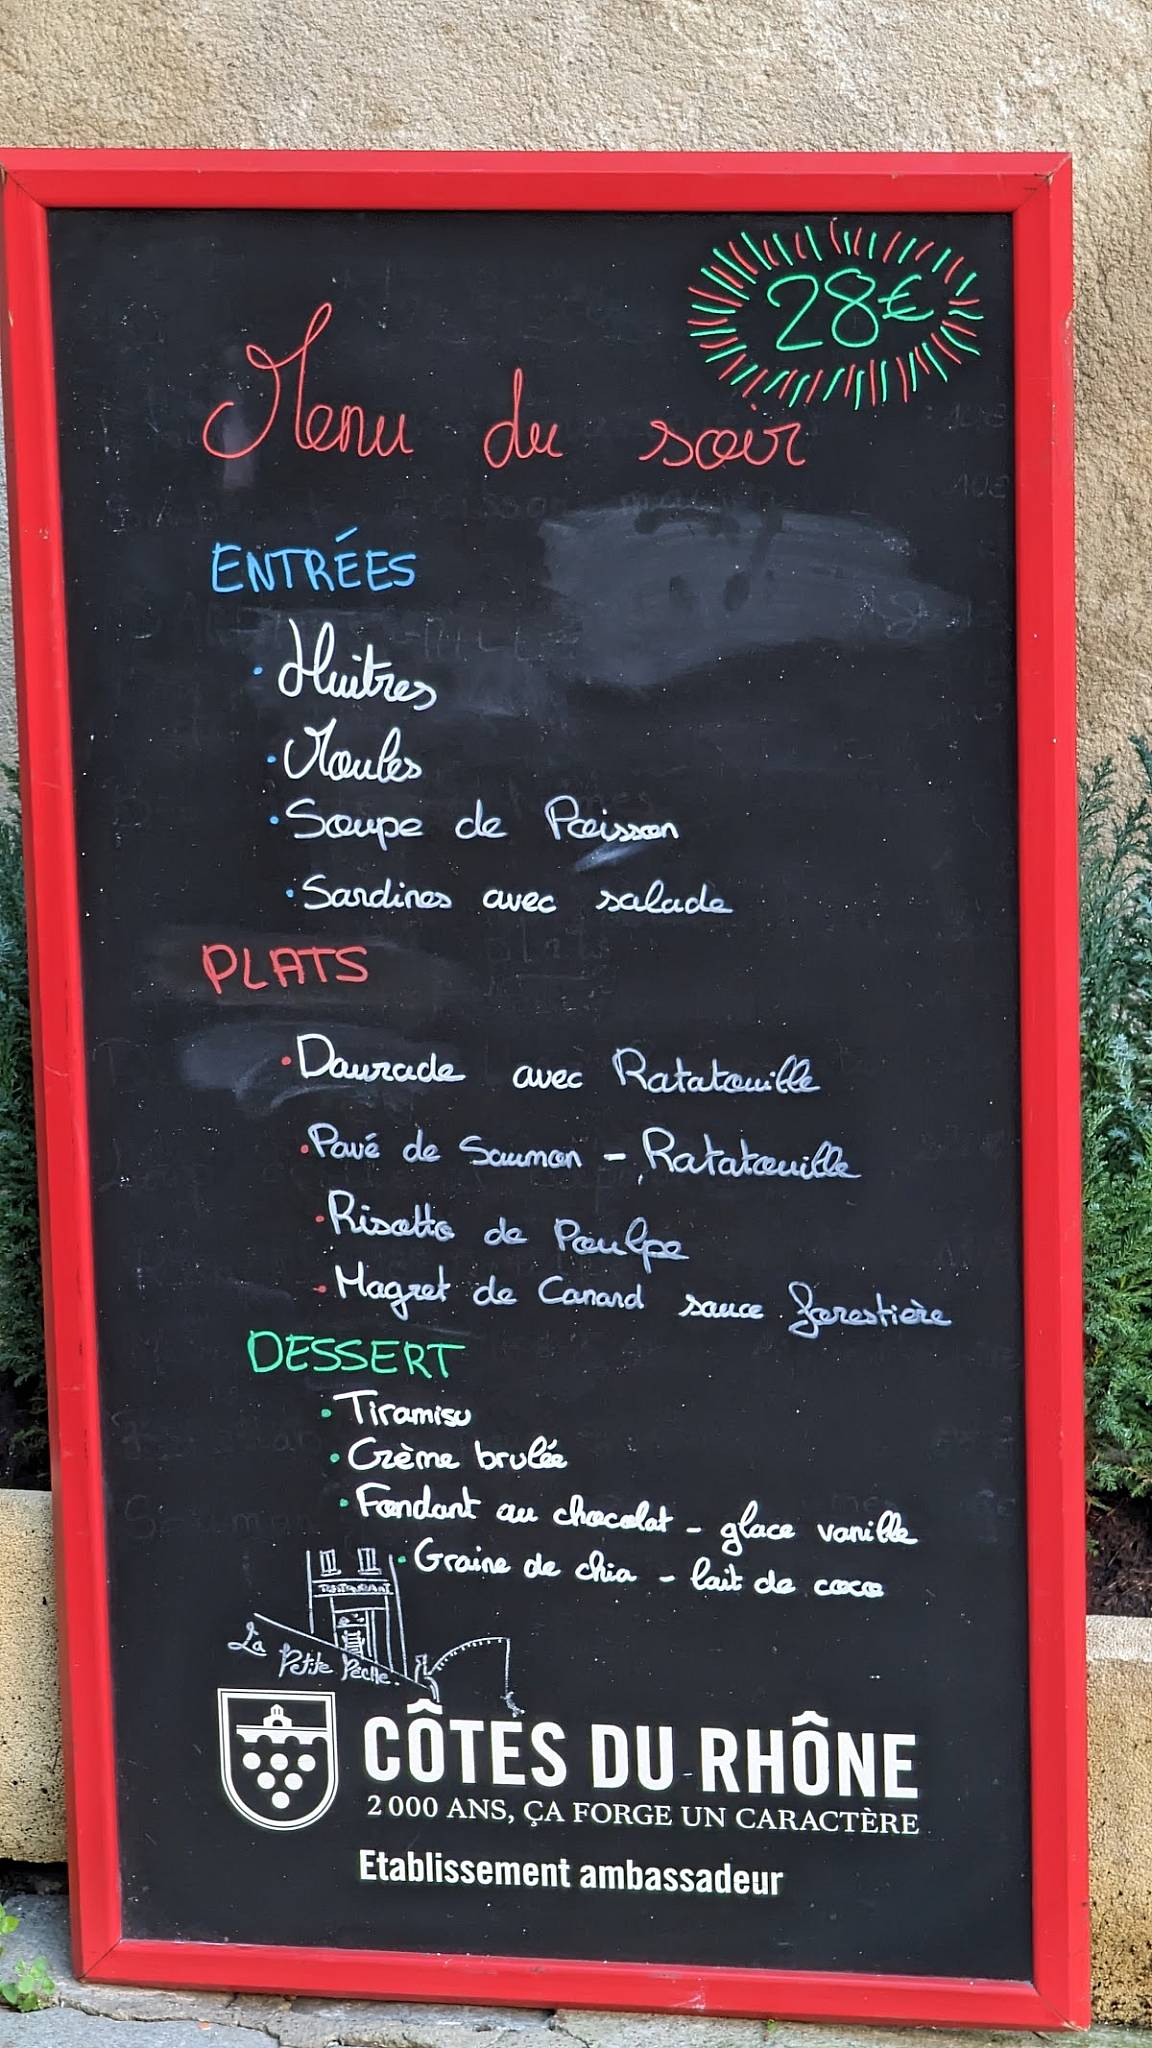 28€
Menu du soir
ENTRÉES
· Huitres
· Moules
· Soupe de Poisson
· Sardines avec salade
PLATS
· Daurade avec Ratatouille
· Pavé de Saumon - Ratatouille
· Risotto de Poulpe
· Magret de Canard sauce forestière
DESSERT
· Tiramisu
· Crème brulée
· Fondant au chocolat - glace vanille
· Graine de chia - lait de coco
RESTAURANT
La Petite Pêche.
CÔTES DU RHÔNE
2 000 ANS, ÇA FORGE UN CARACTÈRE
Etablissement ambassadeur